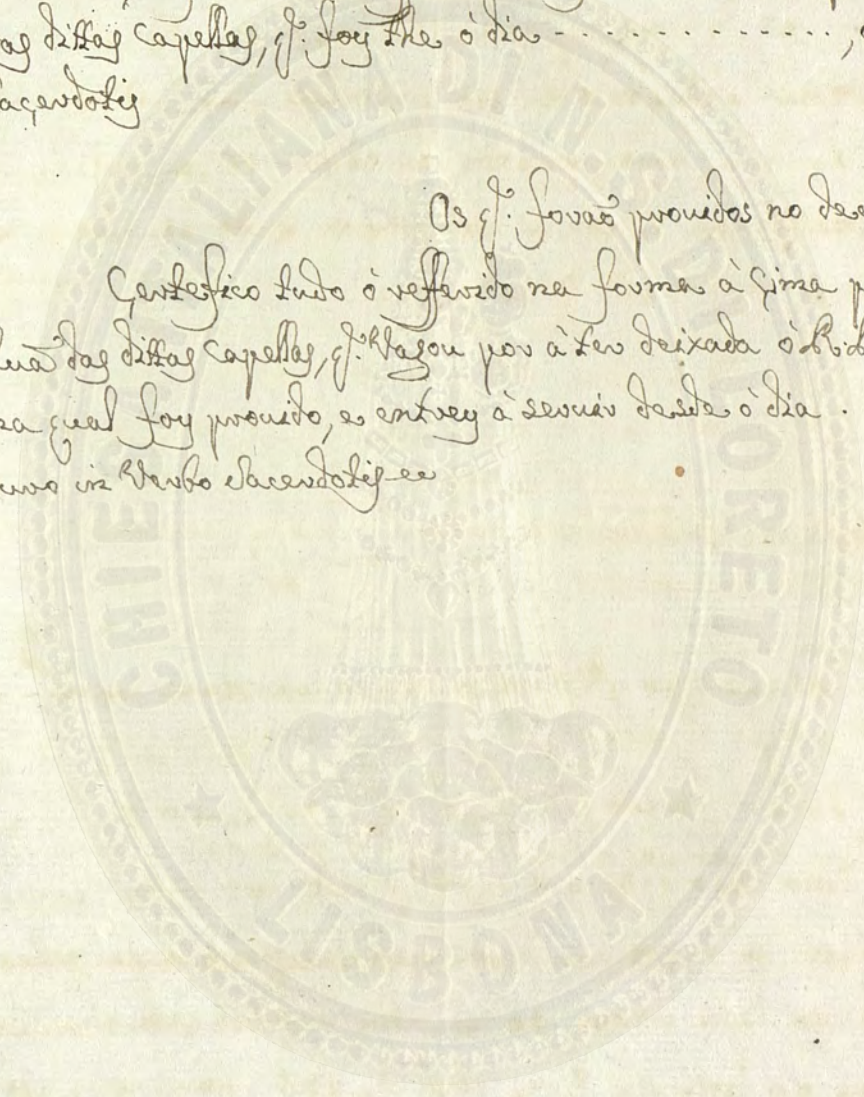 as dittas Capellas, q. foy the ó dia - - - - - - - - - - - - - ,
acerdotis
Os q. forão prouidos no de
Certefico tudo ó refferido na forma à Cima p
huã das dittas Capellas, q. Vagou por à ter deixada ó R.
na qual foy prouido, e entrey à seruir desde ó dia .
juro in Verbo Sacerdotis
CHIESA ITALIANA DI N. S. DI LORETO
LISBONA